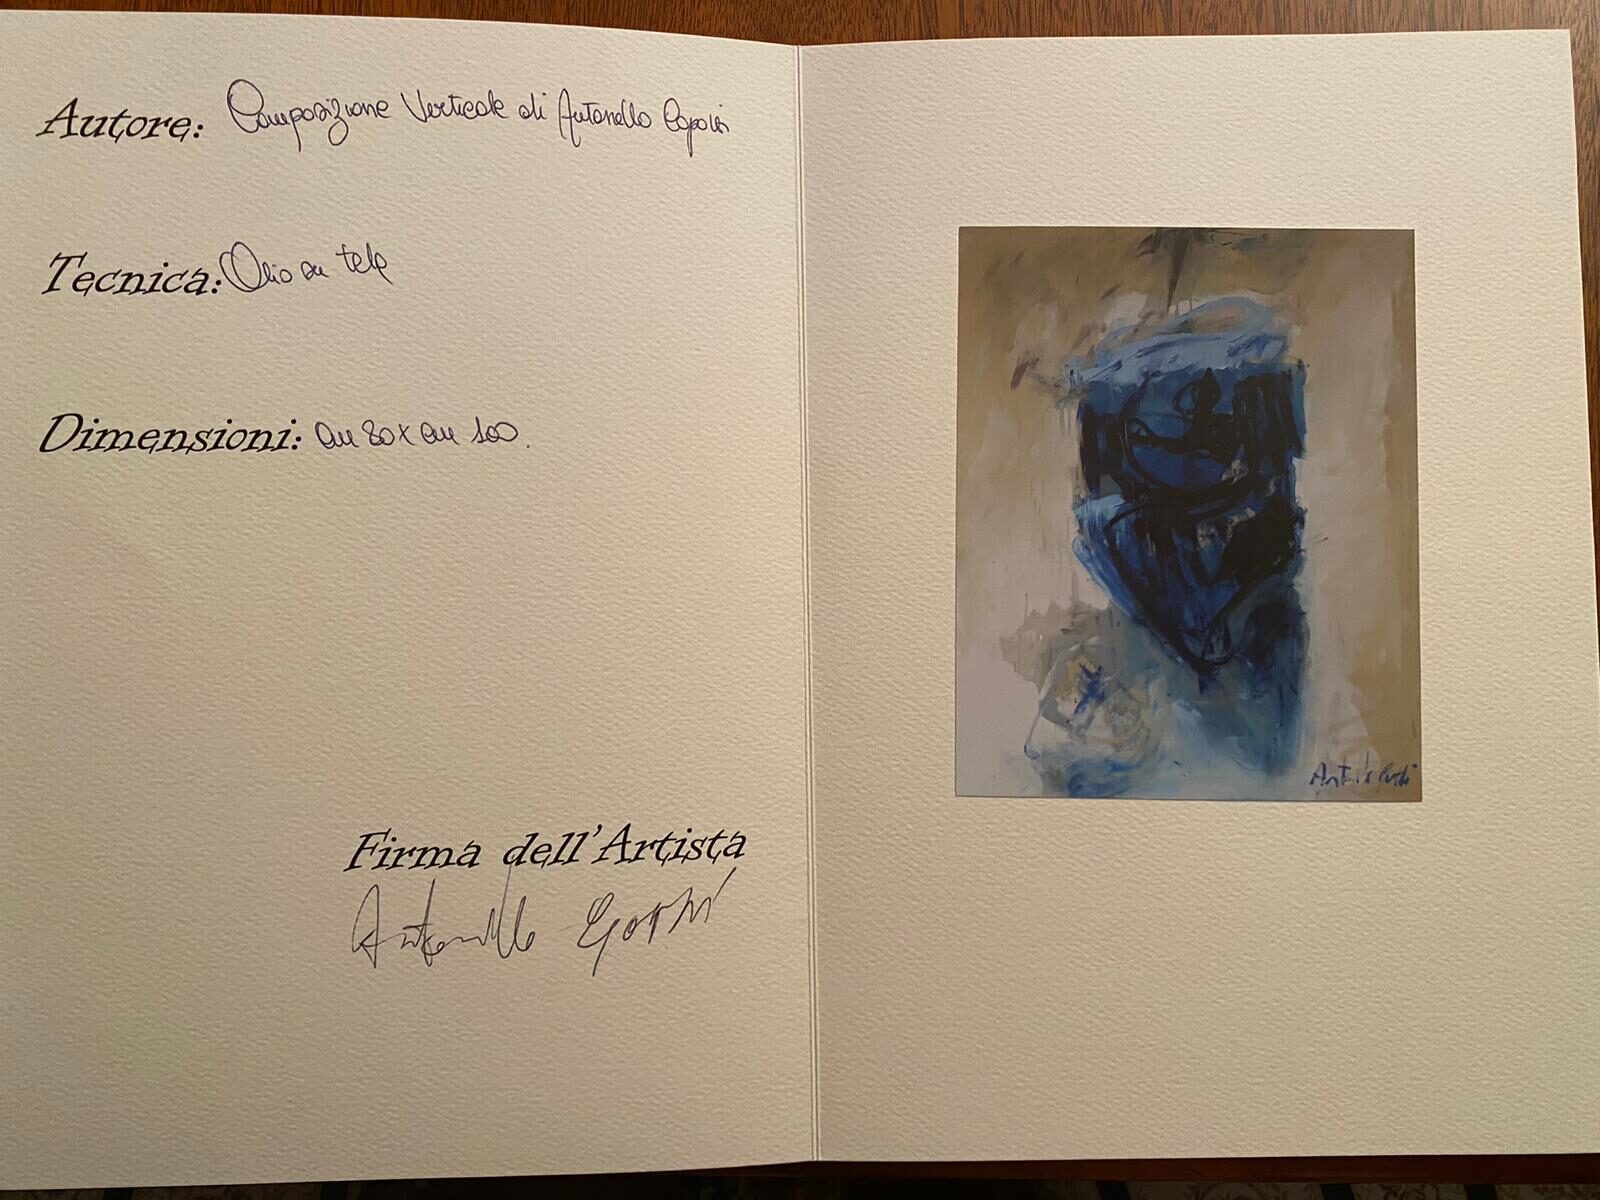 Autore: Composizione Verticale di Antonello Capozzi
Tecnica: Olio su tela
Dimensioni: cm 80 x cm 100.
Firma dell'Artista
Antonello